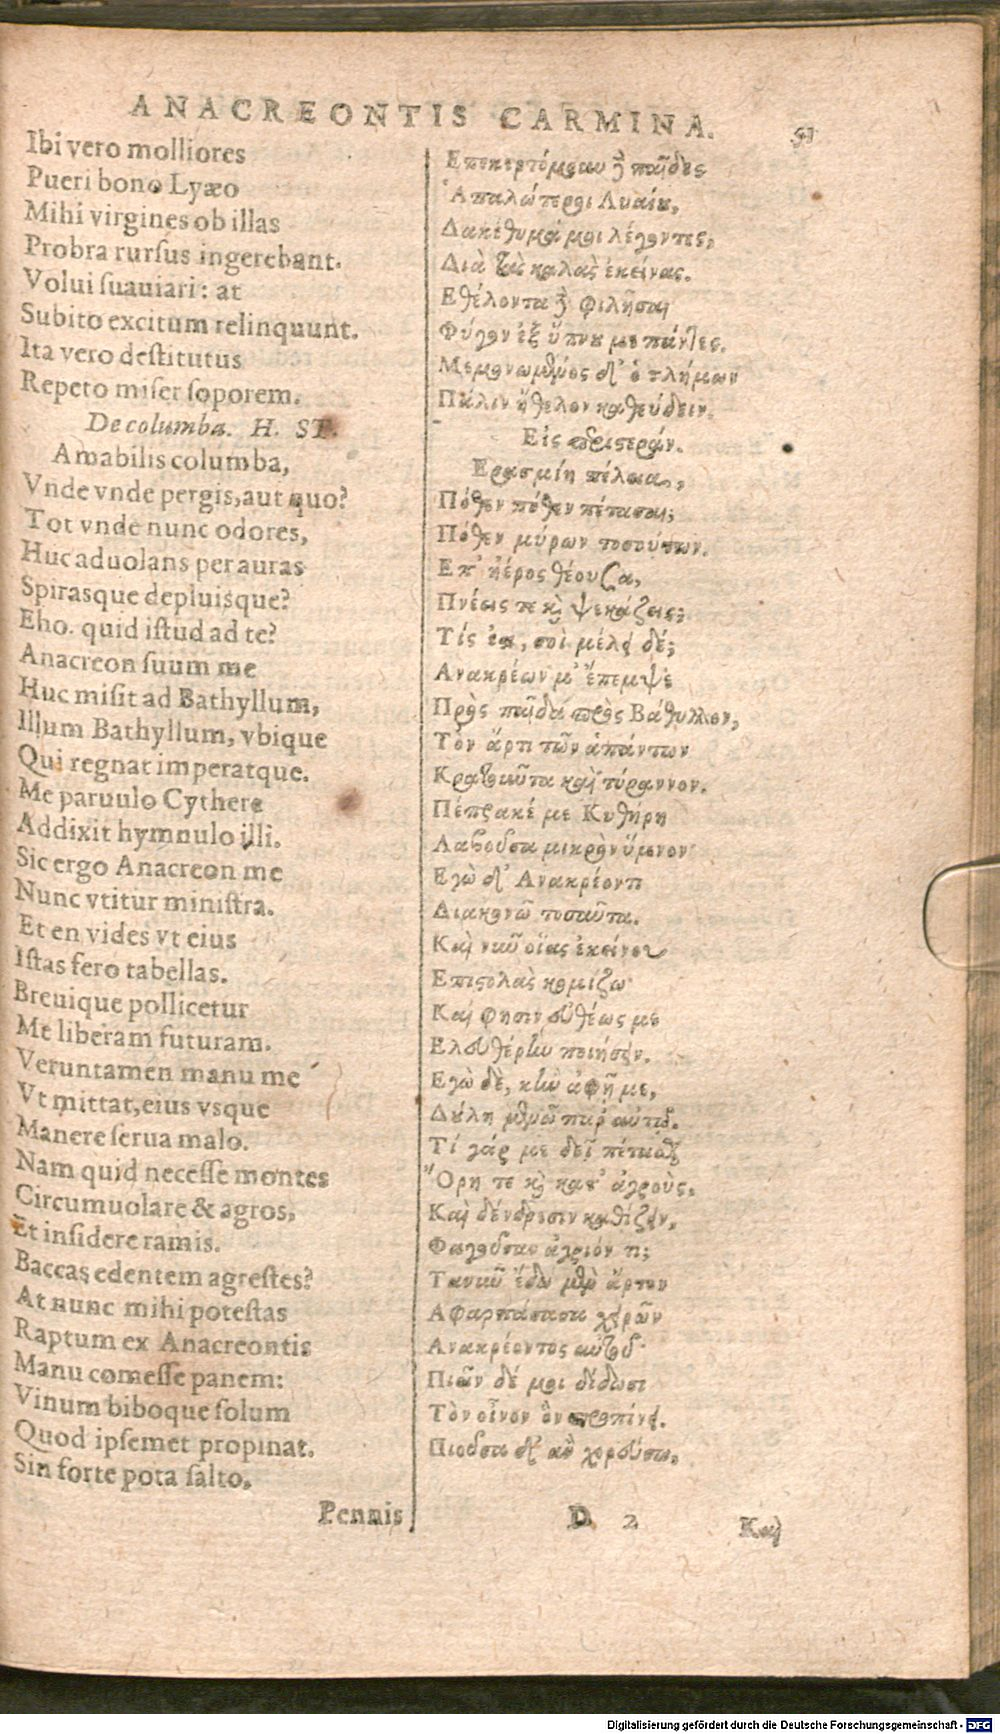 ANACREONTIS CARMINA.
51
Ibi vero molliores
Pueri bono Lyæo
Mihi virgines ob illas
Probra rursus ingerebant.
Volui suauiari: at
Subito excitum relinquunt.
Ita vero destitutus
Repeto miser soporem.
De columba. H. ST.
Amabilis columba,
Vnde vnde pergis, aut quo?
Tot vnde nunc odores,
Huc aduolans per auras
Spirasque depluisque?
Eho. quid istud ad te?
Anacreon suum me
Huc misit ad Bathyllum,
Illum Bathyllum, vbique
Qui regnat imperatque.
Me paruulo Cythere
Addixit hymnulo illi.
Sic ergo Anacreon me
Nunc vtitur ministra.
Et en vides vt eius
Istas fero tabellas.
Breuique pollicetur
Me liberam futuram.
Veruntamen manu me
Vt mittat, eius vsque
Manere serua malo.
Nam quid necesse montes
Circumuolare & agros,
Et insidere ramis.
Baccas edentem agrestes?
At nunc mihi potestas
Raptum ex Anacreontis
Manu comesse panem:
Vinum biboque solum
Quod ipsemet propinat.
Sin forte pota salto,
Pennis
Επεκερτόμουν δὲ παῖδες
Ἁπαλώτεροι Λυαίου,
Δακέθυμά μοι λέγοντες,
Διὰ τὰς καλὰς ἐκείνας.
Εθέλοντα δὲ φιλῆσαι
Φύγον ἐξ ὕπνου με πάντες.
Μεμονωμένος δ' ὁ τλήμων
Πάλιν ἤθελον καθεύδειν.
Εἰς περιστεράν.
Ερασμίη πέλεια,
Πόθεν πόθεν πέτασαι;
Πόθεν μύρων τοσούτων.
Επ' ἠέρος θέουσα,
Πνέεις τε καὶ ψεκάζεις;
Τίς εἶ, σοὶ μέλει δέ;
Ανακρέων μ' ἔπεμψε
Πρὸς παῖδα πρὸς Βάθυλλον,
Τὸν ἄρτι τῶν ἁπάντων
Κρατοῦντα καὶ τύραννον.
Πέπρακέ με Κυθήρη
Λαβοῦσα μικρὸν ὕμνον
Εγὼ δ' Ανακρέοντι
Διακονῶ τοσαῦτα.
Καὶ νῦν οἵας ἐκείνου
Επιστολὰς κομίζω
Καί φησιν εὐθέως με
Ελευθέρην ποιήσειν.
Εγὼ δὲ, κἢν ἀφῇ με,
Δούλη μενῶ παρ' αὐτῷ.
Τί γάρ με δεῖ πέτασθαι
Ὄρη τε καὶ κατ' ἀγροὺς,
Καὶ δένδρεσιν καθίζειν,
Φαγοῦσαν ἄγριόν τι;
Τανῦν ἔδω μὲν ἄρτον
Αφαρπάσασα χειρῶν
Ανακρέοντος αὐτοῦ·
Πιεῖν δέ μοι δίδωσι
Τὸν οἶνον ὃν προπίνει.
Πιοῦσα δ' ἂν χορεύσω,
D 2
Καὶ
Digitalisierung gefördert durch die Deutsche Forschungsgemeinschaft - DFG